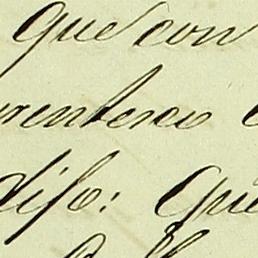 que con
rentesco
dijo: Que